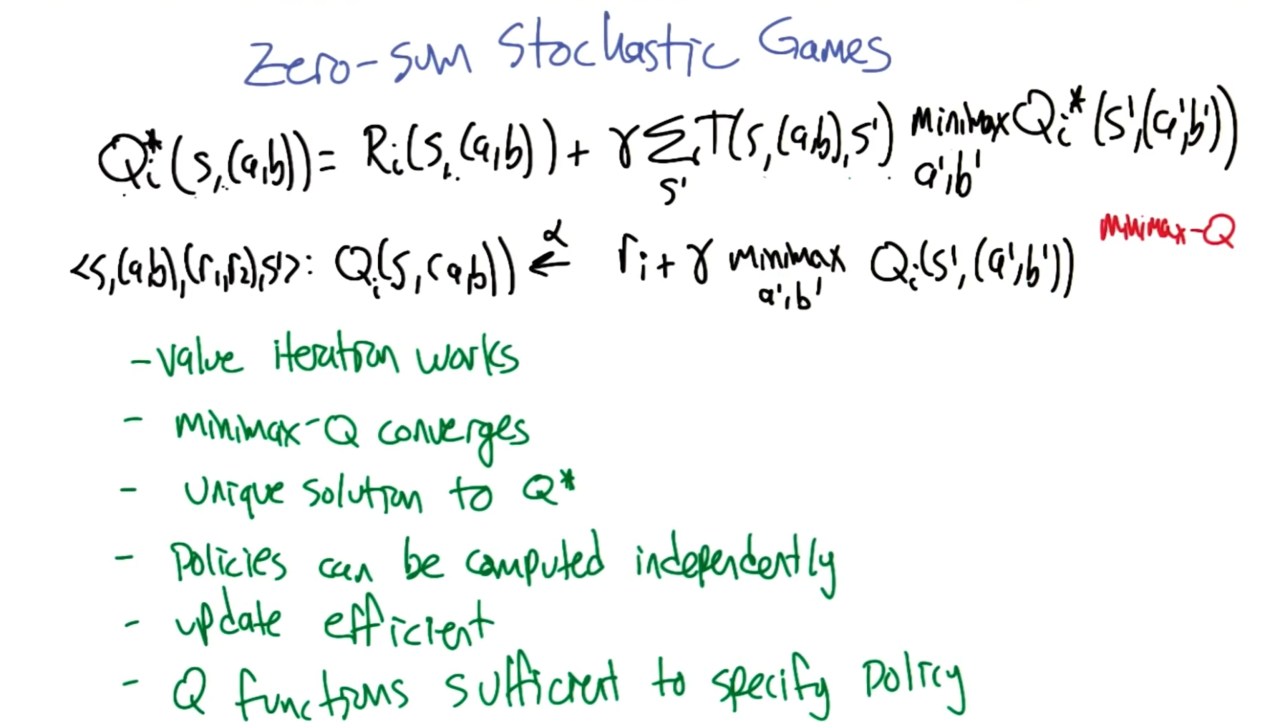 Zero-sum Stochastic Games
Qi*(s,(a,b)) = Ri(s,(a,b)) + γ Σs' T(s,(a,b),s') minimax a',b' Qi*(s',(a',b'))
minimax-Q
<s,(a,b),(r1,r2),s'>: Qi(s,(a,b)) ←α ri + γ minimax a',b' Qi(s',(a',b'))
- value iteration works
- minimax-Q converges
- unique solution to Q*
- policies can be computed independently
- update efficient
- Q functions sufficient to specify policy